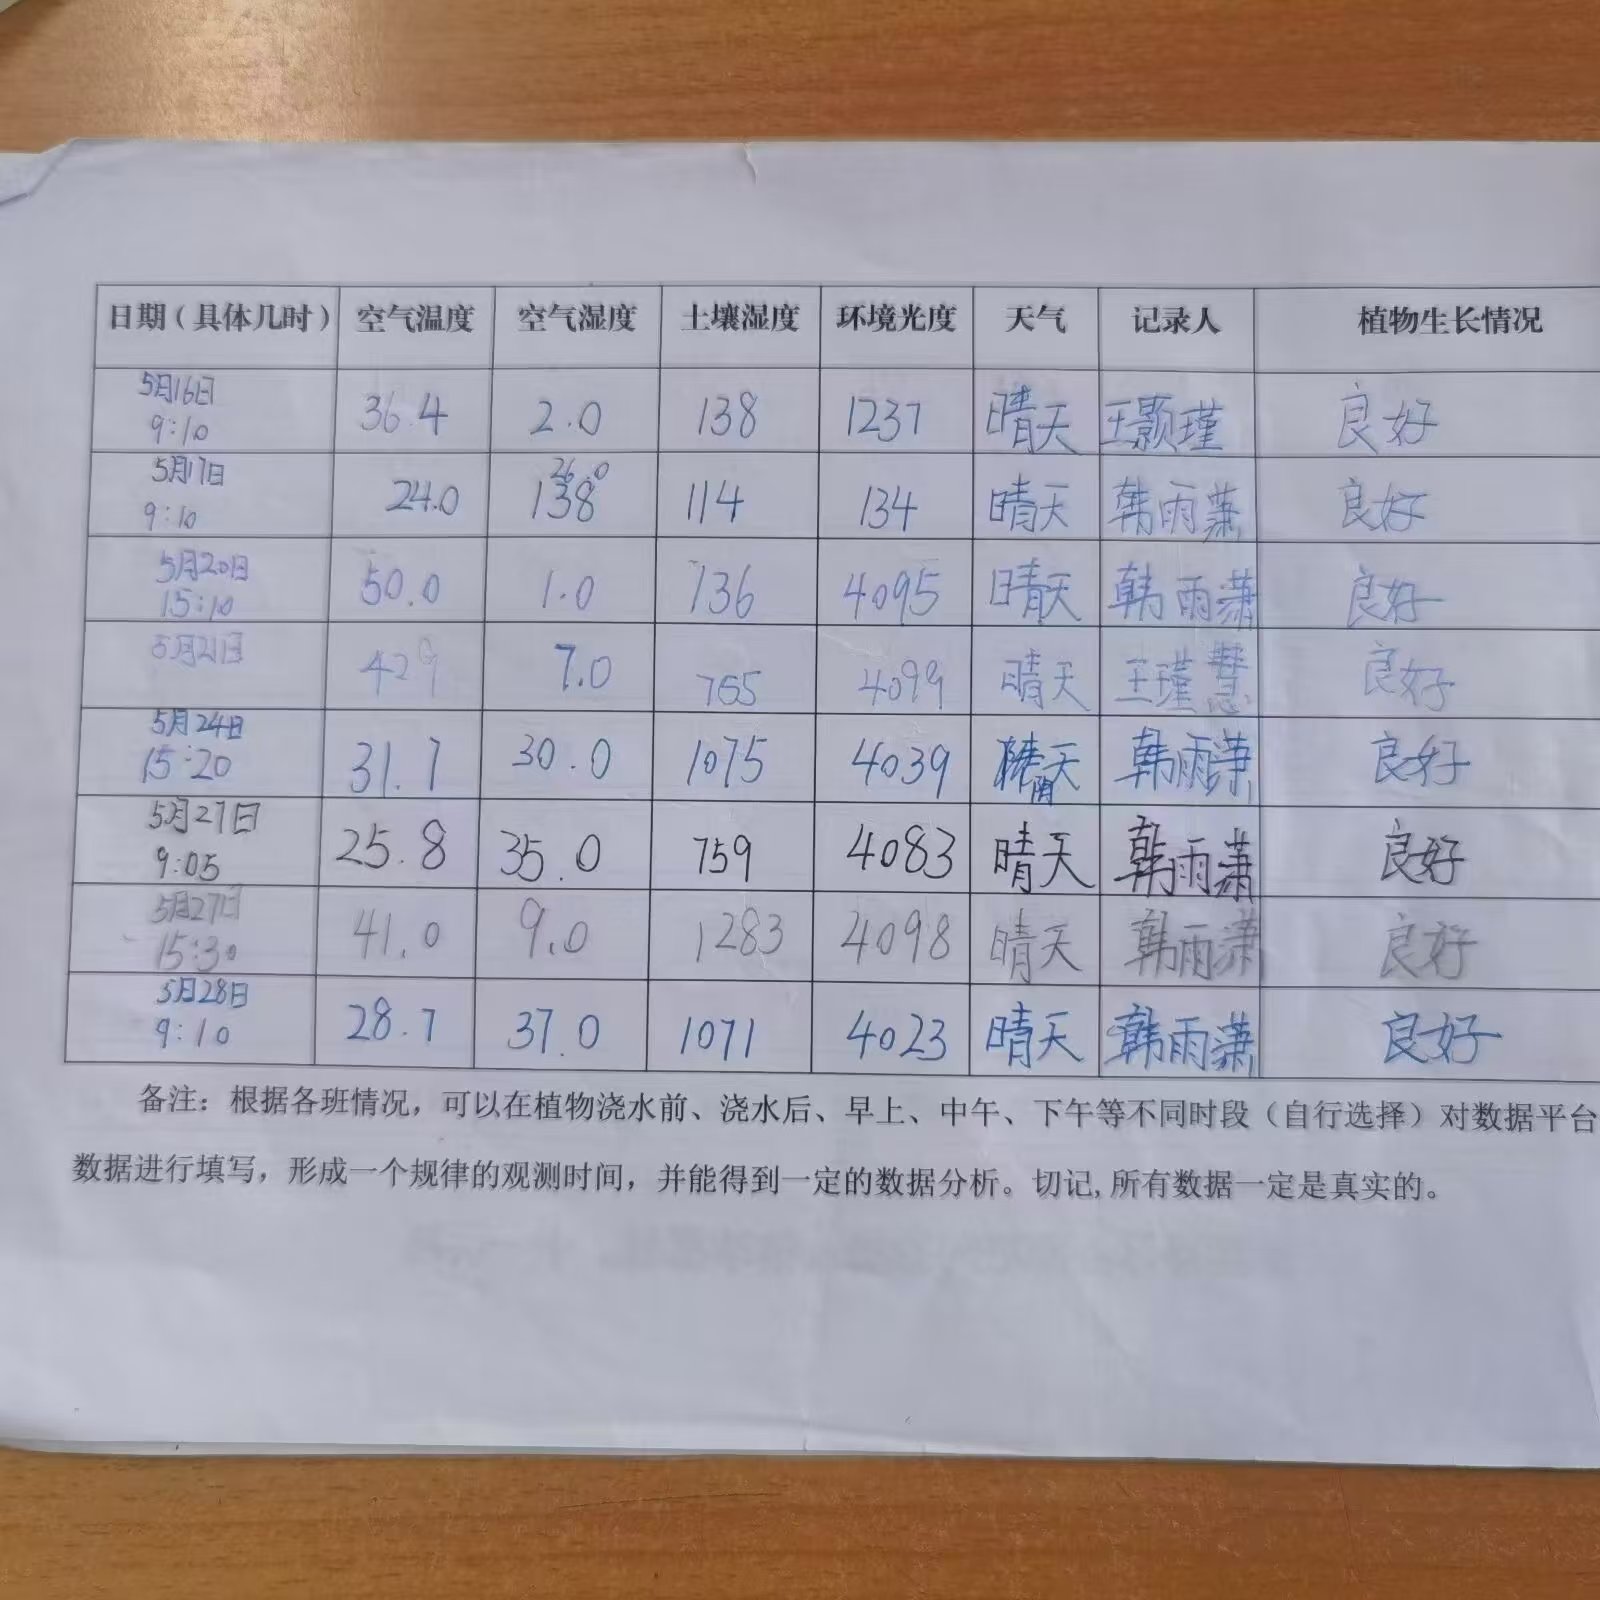 日期(具体几时) 空气温度 空气湿度 土壤湿度 环境光度 天气 记录人 植物生长情况
5月16日
9:10 36.4 2.0 138 1237 晴天 王颢瑾 良好
5月17日 26.0
9:10 24.0 138 114 134 晴天 韩雨潇 良好
5月20日
15:10 50.0 1.0 736 4095 晴天 韩雨潇 良好
5月21日 7.0 765 晴天 王瑾慧 良好
5月24日
15:20 31.7 30.0 1075 4039 天 韩雨潇 良好
阴
5月27日
9:05 25.8 35.0 759 4083 晴天 韩雨潇 良好
5月27日
15:30 41.0 9.0 1283 4098 晴天 韩雨潇 良好
5月28日
9:10 28.7 37.0 1071 4023 晴天 韩雨潇 良好
备注：根据各班情况，可以在植物浇水前、浇水后、早上、中午、下午等不同时段（自行选择）对数据平台
数据进行填写，形成一个规律的观测时间，并能得到一定的数据分析。切记,所有数据一定是真实的。